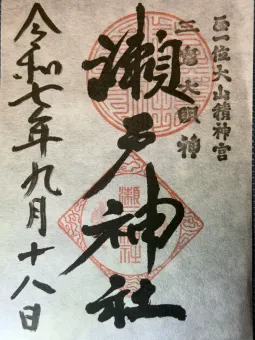 正一位大山積神宮
三島大明神
瀬戸神社
令和七年九月十八日